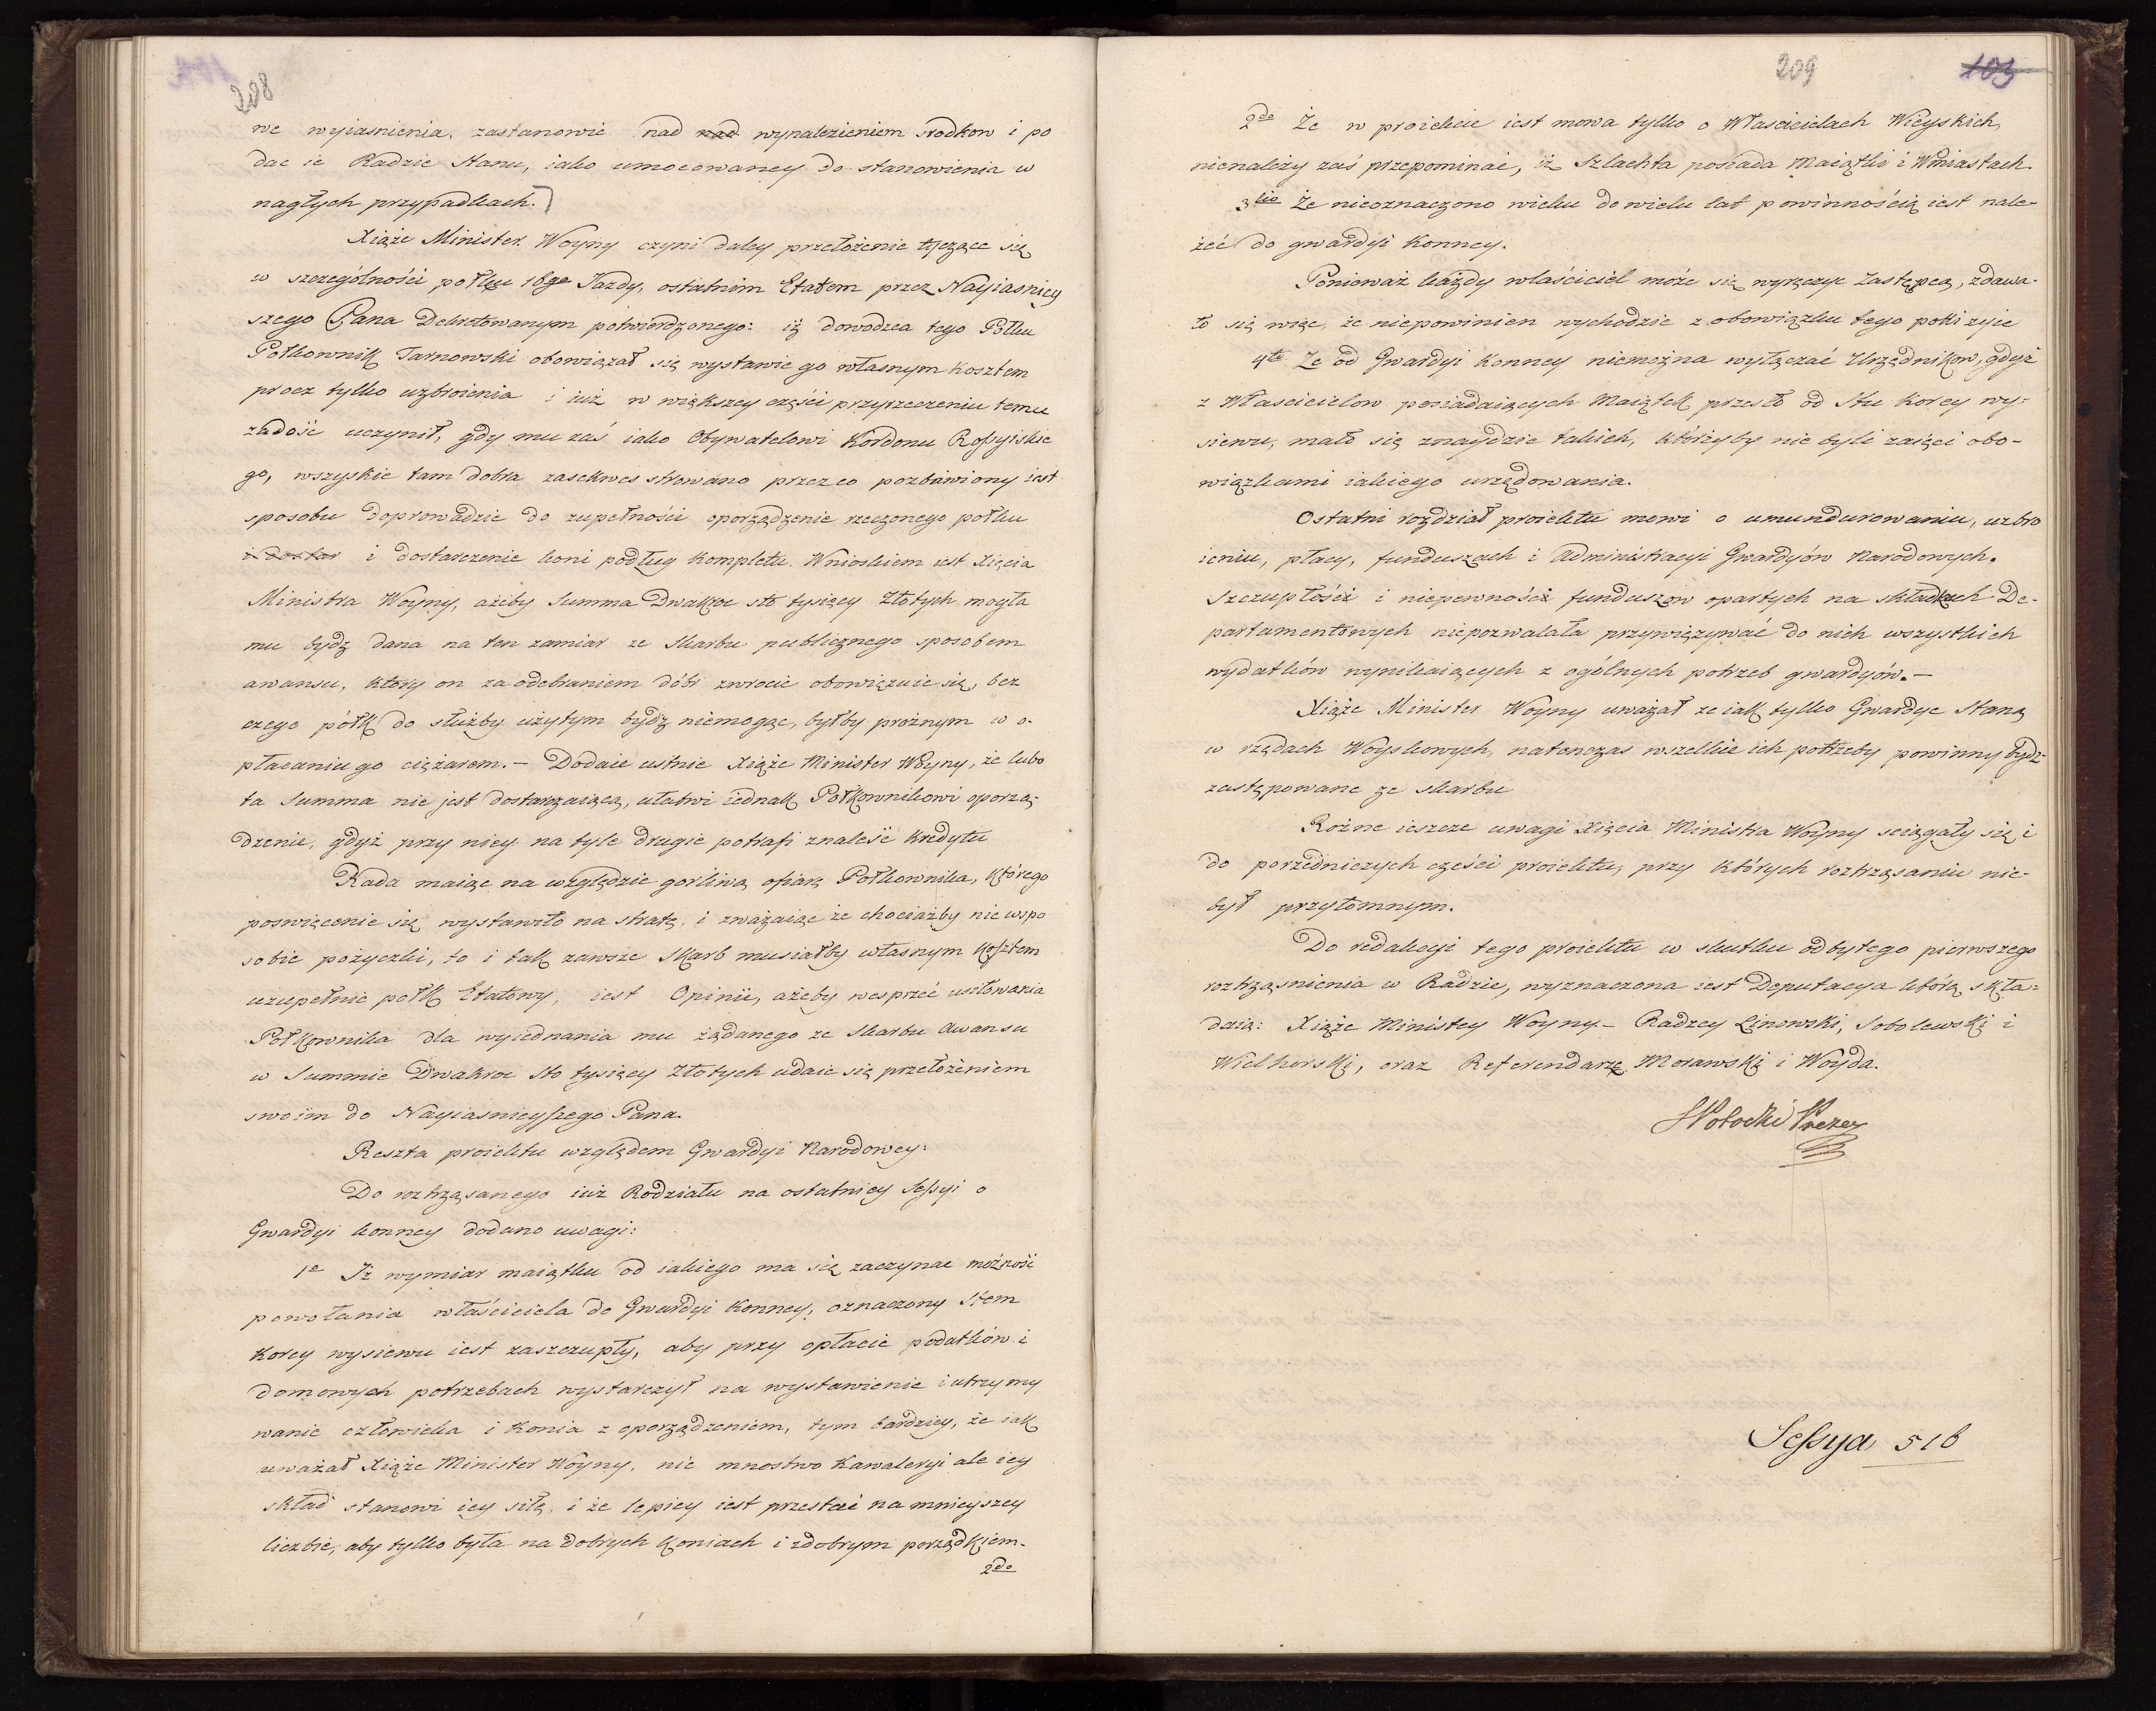 208
we wyiasnienia, zastanowić nad nad wynalezieniem srodkow i po
dac ie Radzie Stanu, iako umocowaney do stanowienia w
nagłych przypadkach.
Xiąże Minister Woyny czyni daley przełożenie tyczące się
w szczególności połku 18go Jazdy, ostatnim Etatem przez Nayiasniey
szego Pana Dekretowanym potwierdzonego: iż dowodzca tego Połku
Połkownik Tarnowski obowiązał się wystawic go własnym kosztem
procz tylko uzbroienia i iuż w większey części przyrzeczeniu temu
zadość uczynił, gdy mu zaś iako Obywatelowi Kordonu Rossyiskie
go, wszyskie tam dobra zasekwestrowano przez co pozbawiony iest
sposobu doprowadzic do zupełności oporządzenie rzeczonego połku
i dostar i dostarczenie koni podług kompletu. Wnioskiem iest Xięcia
Ministra Woyny, ażeby Summa Dwakroc sto tysięcy Złotych mogła
mu bydź dana na ten zamiar ze Skarbu publicznego sposobem
awansu, ktory on za odebraniem dóbr zwrocic obowiązuie się, bez
czego półk do służby użytym bydź niemogąc, byłby prożnym w o-
płacaniu go ciężarem. — Dodaie ustnie Xiąże Minister Woyny, że lubo
ta Summa nie jest dostarczaiącą, ułatwi iednak Połkownikowi oporzą-
dzenie, gdyż przy niey na tyle drugie potrafi znaleść kredytu
Rada maiąc na względzie gorliwą ofiarę Połkownika, którego
poswięcenie się wystawiło na stratę, i zważaiąc że chociażby nie wspo
sobie pożyczki, to i tak zawsze Skarb musiałby własnym kosztem
uzupełnic połk Etatowy, iest Opinii, ażeby wesprzeć usiłowania
Połkownika dla wyiednania mu żądanego ze Skarbu Awansu
w Summie Dwakroc sto tysięcy Złotych udaie się przełożeniem
swoim do Nayiasnieyszego Pana.
Reszta proiektu względem Gwardyi Narodowey:
Do roztrząsanego iuż Rodziału na ostatniey Sessyi o
Gwardyi konney dodano uwagi:
1e Iż wymiar maiątku od iakiego ma się zaczynac możność
powołania właściciela do Gwardyi Konney, oznaczony Stem
Korcy wysiewu iest zaszczupły, aby przy opłacie podatków i
domowych potrzebach wystarczył na wystawienie i utrzymy
wanie człowieka i Konia z oporządzeniem, tym bardziey, że iak
uważał Xiąże Minister Woyny, nie mnostwo Kawaleryi ale iey
skład stanowi iey siłę, i że lepiey iest przestać na mnieyszey
liczbie, aby tylko była na dobrych koniach i zdobrym porządkiem.
2do
209
103
2do Że w proiekcie iest mowa tylko o Właścicielach Wieyskich,
nienależy zaś przepominać, iż Szlachta posiada Maiątki i Wmiastach.
3tio Że nieoznaczono wieku do wielu lat powinnością iest nale-
żeć do gwardyi Konney.
Ponieważ każdy właściciel może się wyręczyc Zastępcą, zdawa-
ło się więc, że niepowinien wychodzic z obowiązku tego poki zyie
4to Ze od Gwardyi Konney niemożna wyłączać Urzędnikow, gdyż
z Właścicielow posiadaiących Maiątek przeszło od Stu Korcy wy-
siewu, mało się znaydzie takich, którzyby nie byli zaięci obo-
wiązkami iakiego urzędowania.
Ostatni rozdział proiektu mowi o umundurowaniu, uzbro
ieniu, płacy, funduszach i Administracyi Gwardyów Narodowych.
Szczupłość i niepewność funduszow opartych na składkach De-
partamentowych niepozwalała przywięzywać do nich wszystkich
wydatków wynikaiących z ogólnych potrzeb gwardyów. —
Xiąże Minister Woyny uważał ze iak tylko Gwardye Staną
w rzędach Woyskowych, natenczas wszelkie ich potrzeby powinny bydź
zastępowane ze skarbu
Rożne ieszcze uwagi Xięcia Ministra Woyny sciągały się i
do porzedniczych części proiektu, przy których roztrząsaniu nie-
był przytomnym.
Do redakcyi tego proiektu w skutku odbytego pierwszego
roztrząsnienia w Radzie, wyznaczona iest Deputacya którą skła-
daią: Xiąże Ministey Woyny — Radzcy Linowski, Sobolewski i
Wielhorski, oraz Referendarze Morawski i Woyda.
SPotocki Prezes
Sessya 516